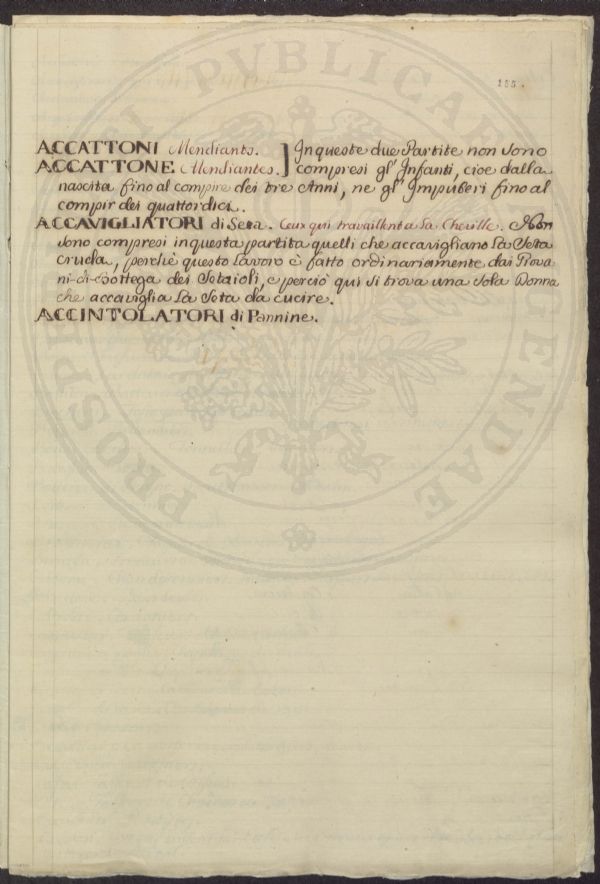 155.
ACCATTONI Mendiants. ] In queste due Partite non sono
ACCATTONE Mendiantes. ] compresi gl' Infanti, cioe dalla
nascita fino al compire dei tre Anni, ne gl' Impuberi fino al
compir dei quattordici.
ACCAVIGLIATORI di Seta. Ceux qui travaillent a la Cheville. Non
sono compresi in questa partita quelli che accavigliano la Seta
cruda, perchè questo Lavoro è fatto ordinariamente dai Giova
ni-di-Bottega dei Setaioli, e perciò qui si trova una sola Donna
che accaviglia la Seta da cucire.
ACCINTOLATORI di Pannine.
PROSPERITATI PVBLICAE AVGENDAE